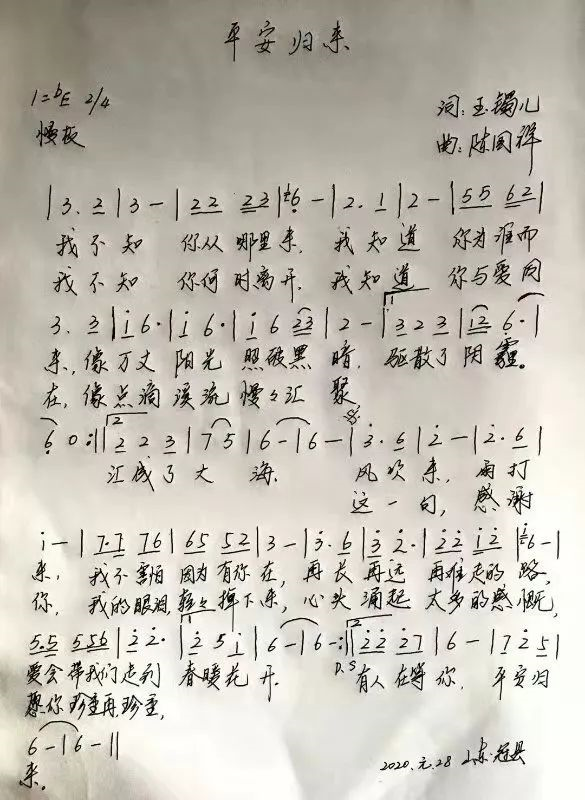 平安归来
1=bE 2/4
慢板
词：玉镯儿
曲：陈国祥
|3. 2|3 -|22 23|6 -|2. 1|2 -|55 62|
我不知 你从哪里来，我知道 你为谁而
我不知 你何时离开，我知道 你与爱同
3. 3|i 6.|i 6.|i 6 23|2 -|3 2 3|12 6.|
来，像万丈 阳光 照破黑 暗，驱散了阴霾。
在，像点滴 溪流 慢々汇 聚
6 0:||2 2 3|7 5|6 -|6 -|3. 6|2 -|2. 6|
汇成了大 海. 风吹来，雨打
这一句，感谢
i -|7.7 76|65 52|3 -|3. 6|3 2.|22 12|6 -|
来，我不害怕 因为有你在，再长再远 再难走的路，
你，我的眼泪 轻々掉下来，心头涌起 太多的感慨，
55 556|2 2.|2 5 i|6 -|6 -:||22 27|6 -|7 2 5|
爱会带我们走到 春暖花开. D.S 有人在等你，平安归
愿你珍重再珍重，
6 -|6 -||
来。
2020.元.28 山东·冠县